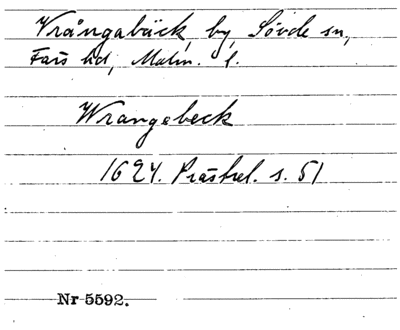 Vrångabäck, by, Sövde sn,
Färs hd, Malm. l.
Wrangebeck
1624. Prästrel. s. 51
Nr 5592.